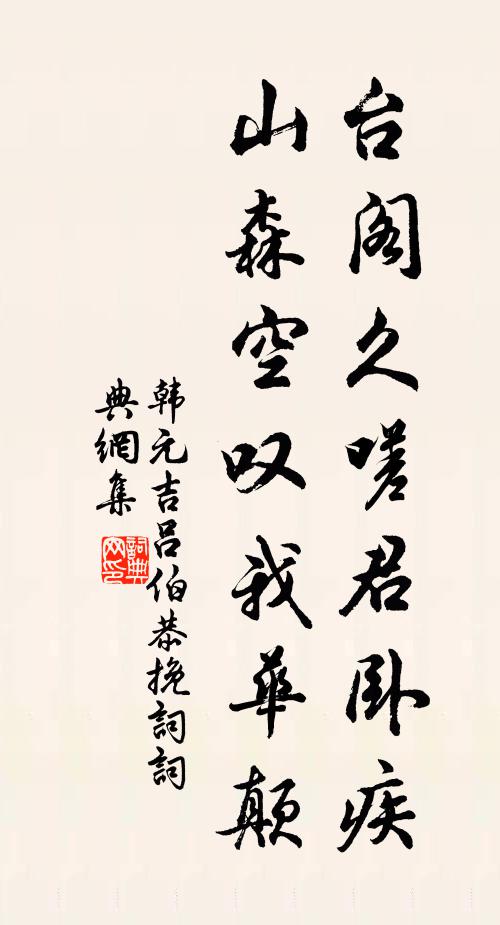 台阁久嗟君卧疾
山森空叹我华颠
韩元吉吕伯恭挽詞詞
典網集
詞典
网印